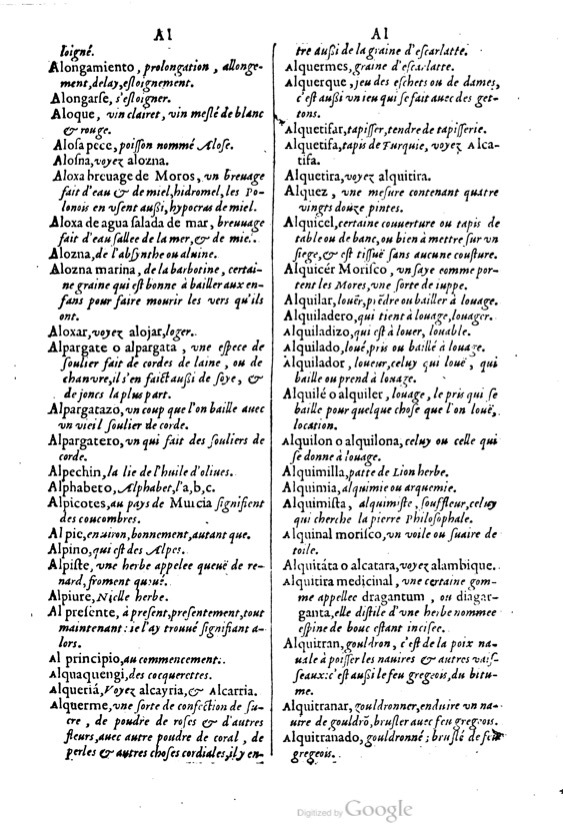 Al
loigné.
Alongamiento, prolongation, allonge-
ment, delay, esloignement.
Alongarse, s'esloigner.
Aloque, vin clairet, vin meslé de blanc
& rouge.
Alosa pece, poisson nommé Alose.
Alosna, voyez alozna.
Aloxa breuage de Moros, un breuage
fait d'eau & de miel, hidromel, les Po-
lonois en vsent aussi, hypocras de miel.
Aloxa de agua salada de mar, breuuage
fait d'eau sallee de la mer, & de mie.
Alozna, de l'absynthe ou aluine.
Alozna marina, de la barbotine, certai-
ne graine qui est bonne à bailler aux en-
fans pour faire mourir les vers qu'ils
ont.
Aloxar, voyez alojar, loger.
Alpargate o alpargata, vne espece de
soulier fait de cordes de laine, ou de
chanvre, il s'en faict aussi de soye, &
de joncs la plus part.
Alpargatazo, un coup que l'on baille auec
un vieil soulier de corde.
Alpargatero, vn qui fait des souliers de
corde.
Alpechin, la lie de l'huile d'oliues.
Alphabeto, Alphabet, l'a, b, c.
Alpicotes, au pays de Murcia signifient
des coucombres.
Al pie, environ, bonnement, autant que.
Alpino, qui est des Alpes.
Alpiste, vne herbe appelee queuë de re-
nard, froment queuë.
Alpiure, Nielle herbe.
Al presente, à present, presentement, tout
maintenant: ie l'ay trouué signifiant a-
lors.
Al principio, au commencement.
Alquaquengi, des cocquerettes.
Alqueriá, Voyez alcayria, & Alcarria.
Alquerme, vne sorte de confection de su-
cre, de poudre de roses & d'autres
fleurs, auec autre poudre de coral, de
perles & autres choses cordiales, il y en-
Al
tre aussi de la graine d'escarlatte.
Alquermes, graine d'escarlatte.
Alquerque, jeu des eschets ou de dames,
c'est aussi vn ieu qui se fait auec des get-
tons.
Alquetifar, tapisser, tendre de tapisserie.
Alquetifa, tapis de Turquie, voyez Alca-
tifa.
Alquetira, voyez alquitira.
Alquez, vne mesure contenant quatre
vingts douze pintes.
Alquicel, certaine couuerture ou tapis de
table ou de banc, ou bien à mettre sur vn
siege, & est tissuë sans aucune cousture.
Alquicér Morisco, vn saye comme por-
tent les Mores, vne sorte de iuppe.
Alquilar, louër, prēdre ou bailler à louage.
Alquiladero, qui tient à louage, louager.
Alquiladizo, qui est à louer, louable.
Alquilado, loué, pris ou baillé à louage.
Alquilador, loueur, celuy qui louë, qui
baille ou prend à louage.
Alquilé o alquiler, louage, le pris qui se
baille pour quelque chose que l'on louë,
location.
Alquilon o alquilona, celuy ou celle qui
se donne à louage.
Alquimilla, patte de Lion herbe.
Alquimia, alquimie ou arquemie.
Alquimista, alquimiste, souffleur, celuy
qui cherche la pierre Philosophale.
Alquinal morisco, vn voile ou suaire de
toile.
Alquitáta o alcatara, voyez alambique.
Alquitira medicinal, vne certaine gom-
me appellee dragantum, ou diagar-
ganta, elle distile d'vne herbe nommee
espine de bouc estant incisee.
Alquitran, gouldron, c'est de la poix na-
uale à poisser les nauires & autres vais-
seaux: c'est aussi le feu gregeois, du bitu-
me.
Alquitranar, gouldronner, enduire vn na-
uire de gouldrõ, brusler auec feu gregeois.
Alquitranado, gouldronné; bruslé de feu
gregeois.
Digitized by Google